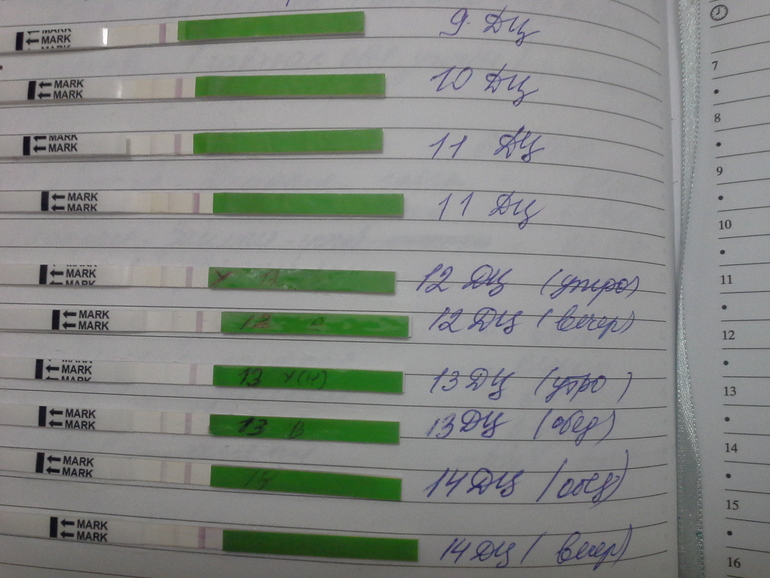 MARK
MARK
9 ДЦ
MARK
MARK
10 ДЦ
MARK
MARK
11 ДЦ
MARK
MARK
11 ДЦ
MARK
MARK
12 ДЦ (утро)
MARK
MARK
12 ДЦ (вечер)
MARK
MARK
13 У(Н)
13 ДЦ (утро)
MARK
MARK
13 В
13 ДЦ (обед)
MARK
MARK
14
14 ДЦ (обед)
MARK
MARK
14 ДЦ (вечер)
7
8
9
10
11
12
13
14
15
16